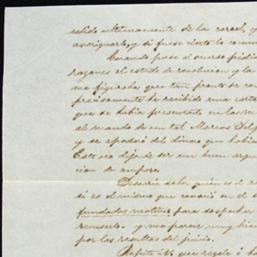 salido ultimamente de la carcel, y
averiguarlo, y si fuese cierto lo comun
Cuando puse el curso
razones el estado de revolucion y la
me figuraba que tan pronto se con
precisamente he recibido una carta
que se habia presentado en la
al mando de un tal Marcos
y se apoderó del dinero que habia
Esto no dejó de ser un buen argu
cion de amparo.
Desearia saber quien es el
si es el mismo que conocí en el
fundados motivos para
y me parece muy bien
por los resultas del juicio.
Repito á V. que regale ó